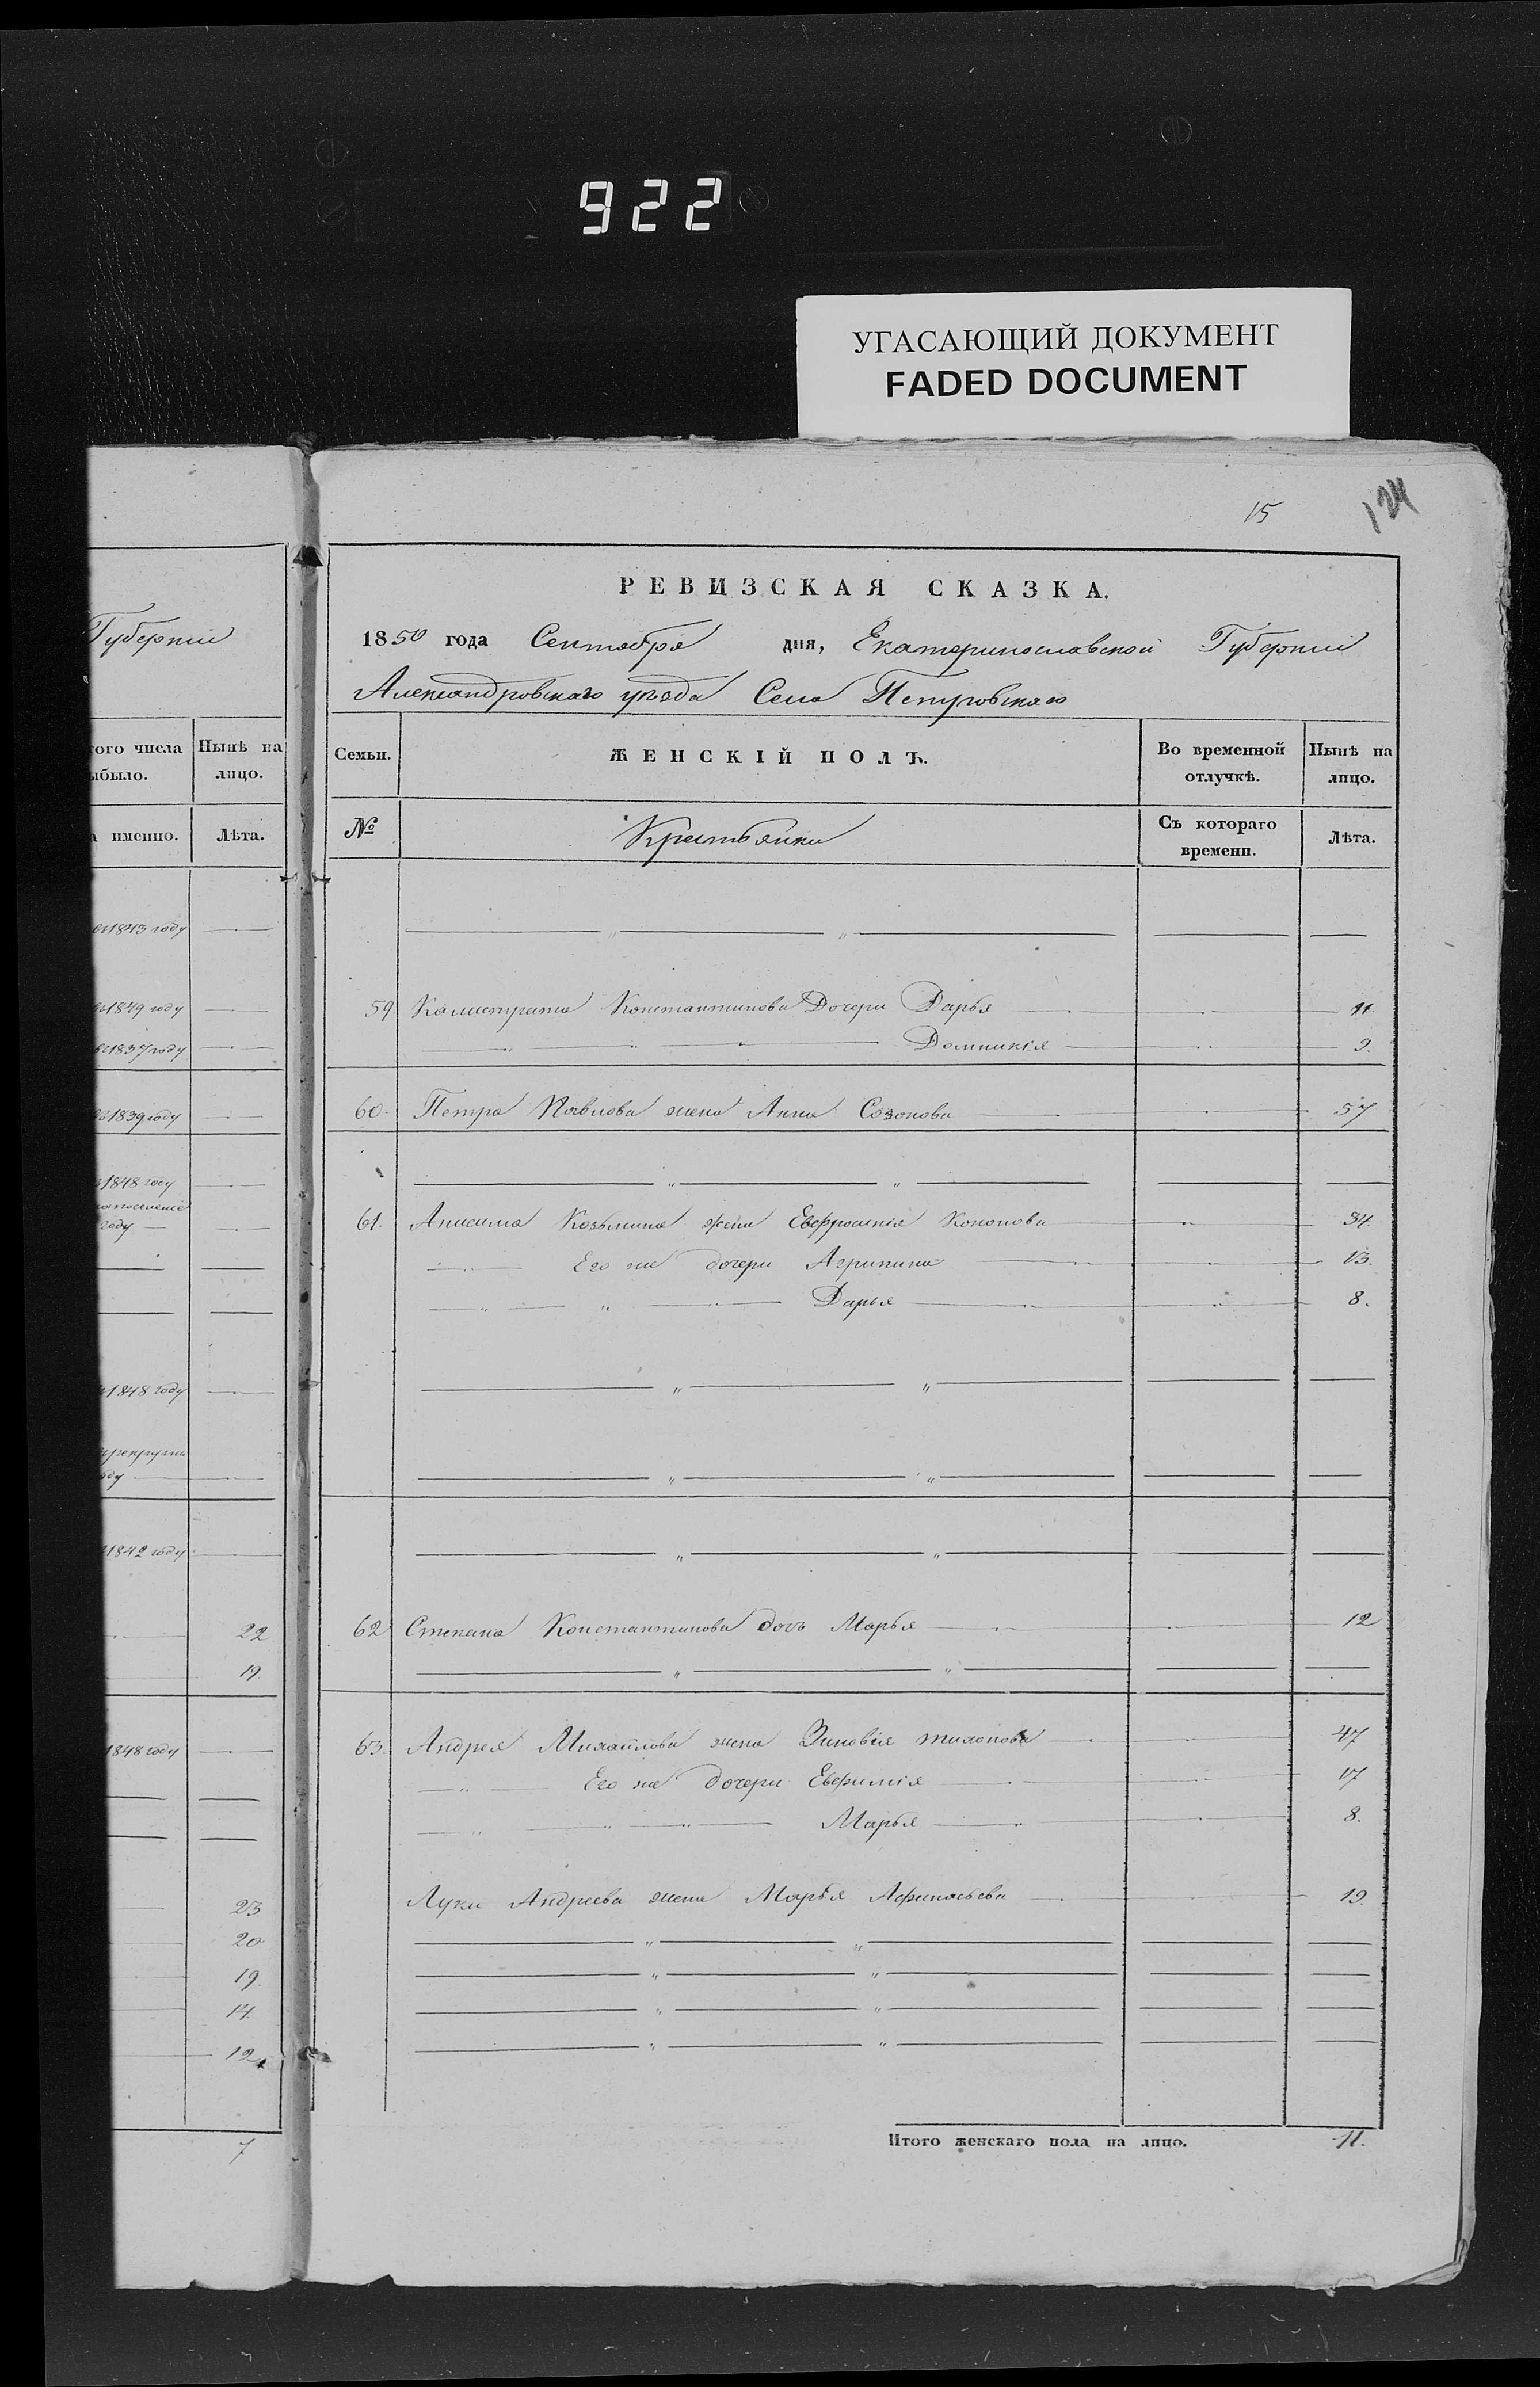 922
УГАСАЮЩИЙ ДОКУМЕНТ
FADED DOCUMENT
15
124
Губерніи
того числа
ыбыло.
Нынѣ на
лицо.
а именно.
Лѣта.
1843 году
1849 году
1837 году
1839 году
1848 году
году
1848 году
1842 году
22
19.
1848 году
23
20
19.
14.
12
7
РЕВИЗСКАЯ СКАЗКА.
1850 года Сентября дня, Екатеринославской Губерніи
Александровскаго уѣзда Села Петровскаго
Семьи. ЖЕНСКІЙ ПОЛЪ. Во временной отлучкѣ. Нынѣ на лицо.
№ Крестьянки Съ котораго времени. Лѣта.
59 Калистрата Константинова Дочери Дарья 11.
Домникія 9.
60 Петра Павлова жена Анна Созонова 57
61. Анисима Козьмина жена Евфросинія Кононова 34.
Его же дочери Агрипина 13.
Дарья 8.
62 Степана Константинова дочь Марья 12
63. Андрея Михайлова жена Зиновія тихонова 47
Его же дочери Евфимія 17
Марья 8.
Луки Андреева жена Марья Афанасьева 19.
Итого женскаго пола на лицо. 11.